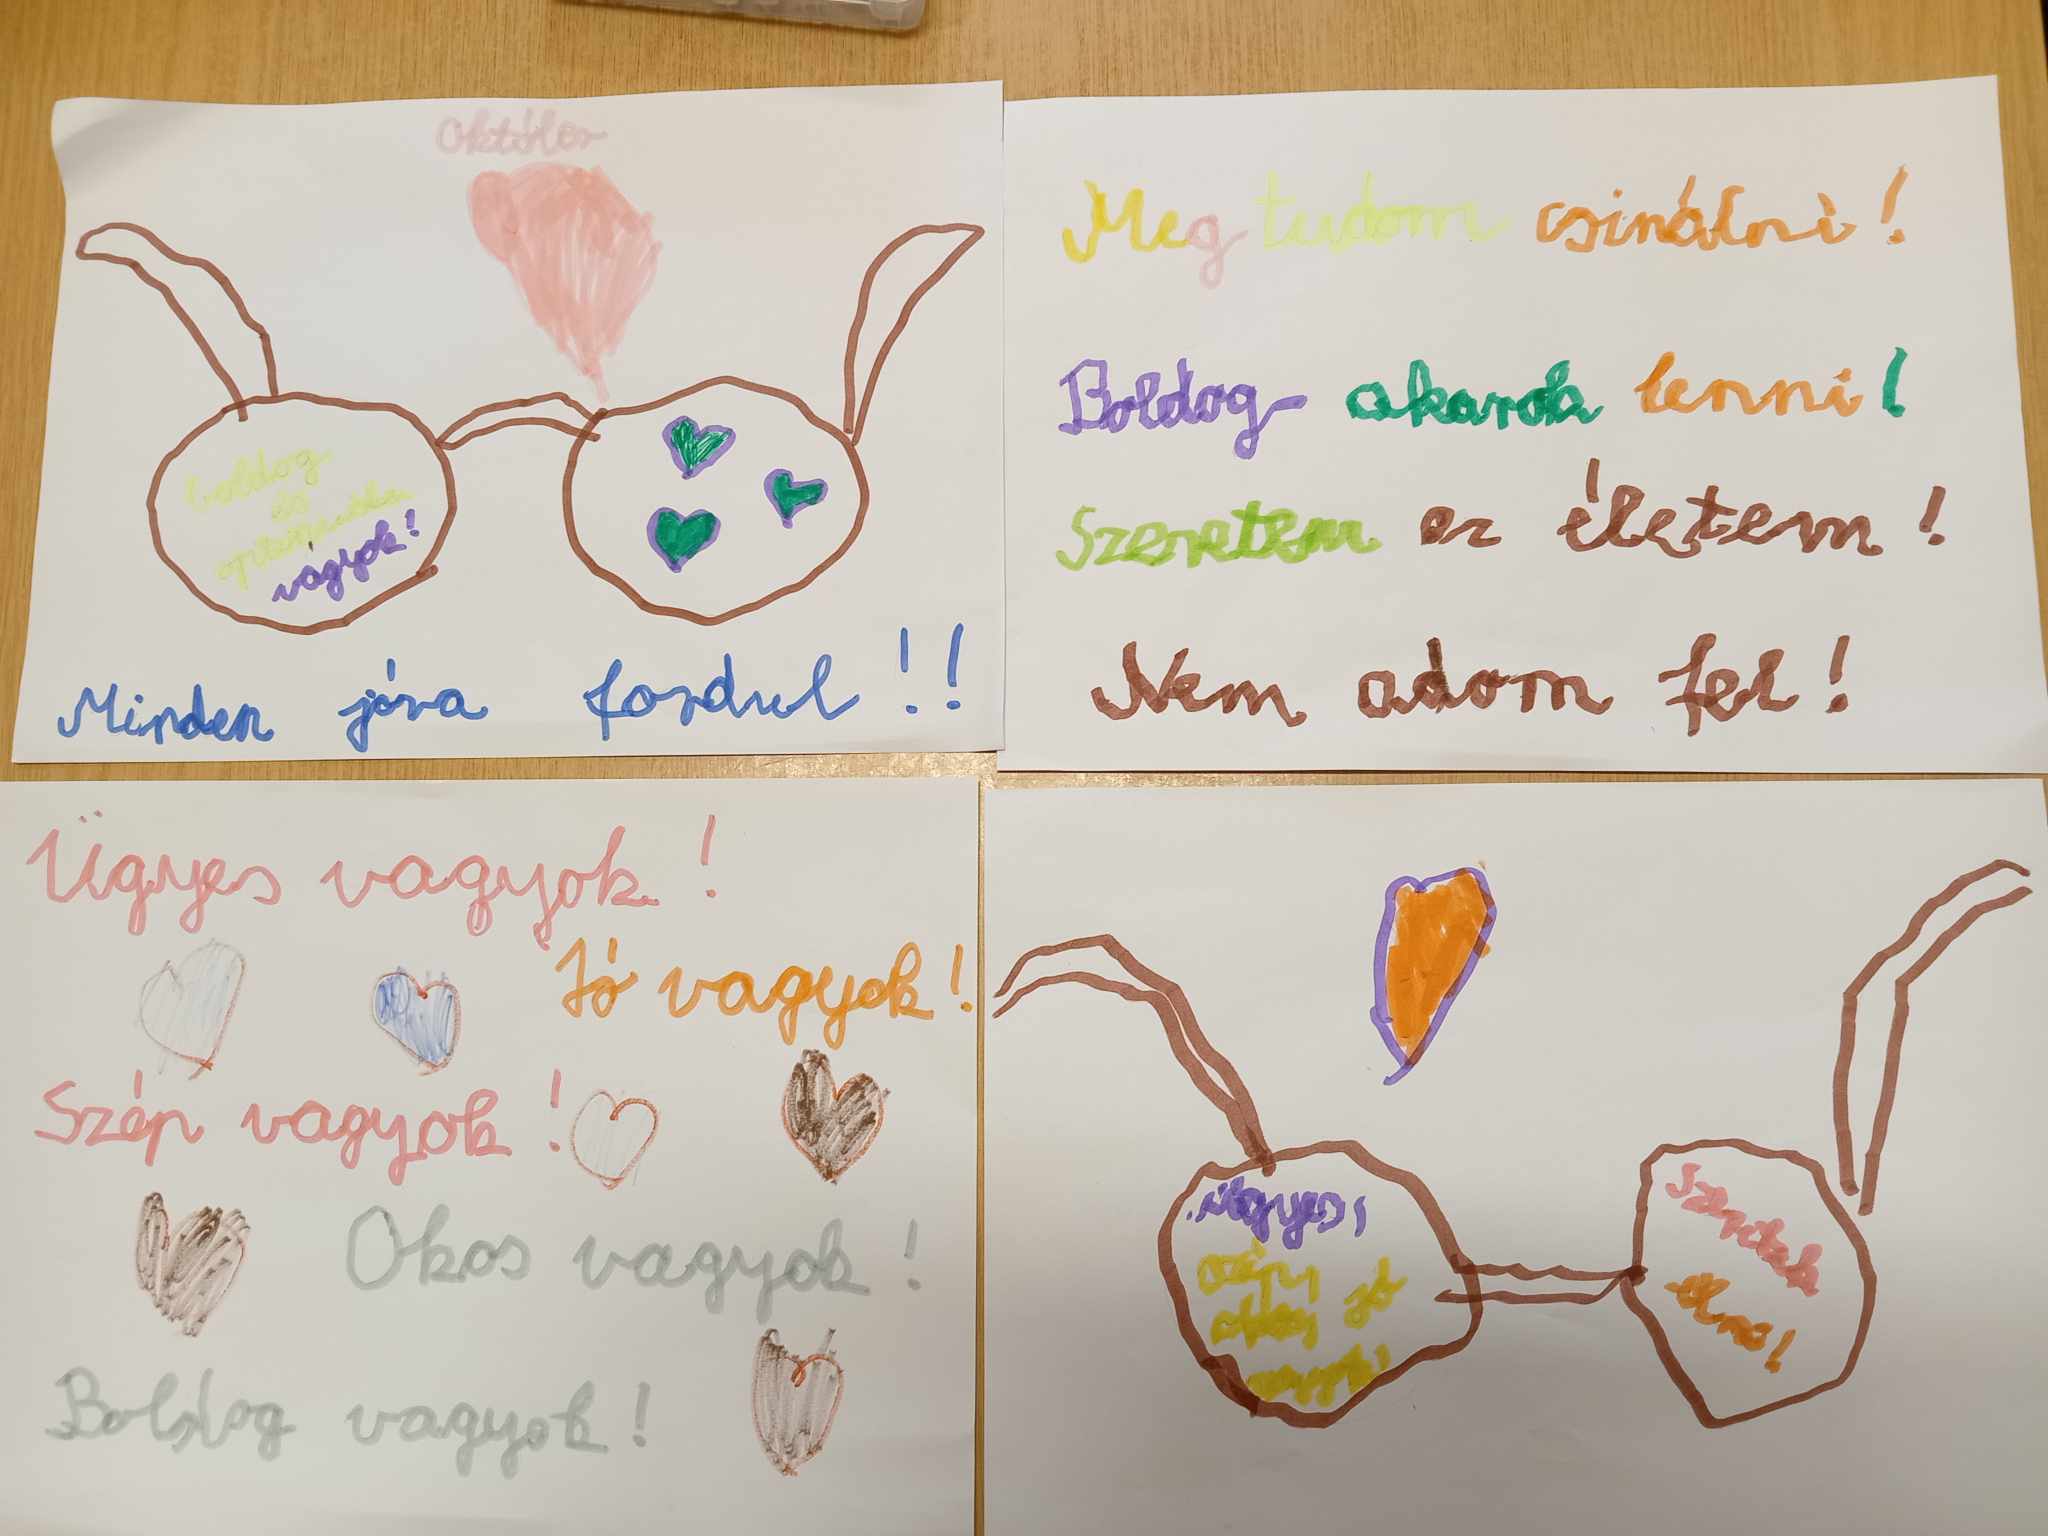 Október
boldog
és
optimista
vagyok!
Minden jóra fordul!!
Meg tudom csinálni!
Boldog akarok lenni!
Szeretem az életem!
Nem adom fel!
Ügyes vagyok!
Jó vagyok!
Szép vagyok!
Okos vagyok!
Boldog vagyok!
Ügyes,
szép,
okos, jó
vagyok!
Szeretek
élni!